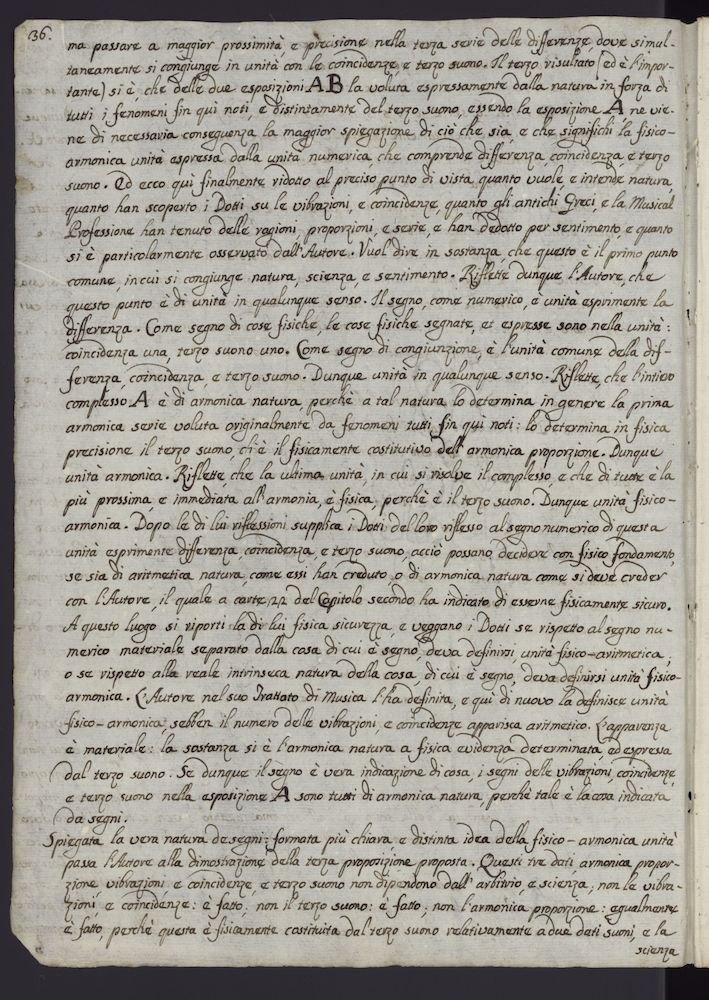 36.
ma passare a maggior prossimità, e precisione nella terza serie delle differenze, dove simul-
taneamente si congiunge in unità con le coincidenze, e terzo suono. Il terzo risultato (ed è l'impor-
tante) si è, che delle due esposizioni A B la voluta espressamente dalla natura in forza di
tutti i fenomeni fin quì noti, e distintamente del terzo suono, essendo la esposizione A ne vie-
ne di necessaria conseguenza la maggior spiegazione di ciò che sia, e che significhi la fisico-
armonica unità espressa dalla unità numerica, che comprende differenza, coincidenza, e terzo
suono. Ed ecco quì finalmente ridotto al preciso punto di vista quanto vuole, e intende natura,
quanto han scoperto i Dotti su le vibrazioni, e coincidenze, quanto gli antichi Greci, e la Musical
Professione han tenuto delle ragioni, proporzioni, e serie, e han dedotto per sentimento, e quanto
si è particolarmente osservato dall'Autore. Vuol dire in sostanza, che questo è il primo punto
comune, in cui si congiunge natura, scienza, e sentimento. Riflette dunque l'Autore, che
questo punto è di unità in qualunque senso. Il segno, come numerico, è unità esprimente la
differenza. Come segno di cose fisiche, le cose fisiche segnate, et espresse sono nella unità:
coincidenza una, terzo suono uno. Come segno di congiunzione, è l'unità comune della dif-
ferenza, coincidenza, e terzo suono. Dunque unità in qualunque senso. Riflette, che l'intiero
complesso A è di armonica natura, perchè a tal natura lo determina in genere la prima
armonica serie voluta originalmente da fenomeni tutti fin quì noti: lo determina in fisica
precisione il terzo suono, ch'è il fisicamente costitutivo dell'armonica proporzione. Dunque
unità armonica. Riflette, che la ultima unità, in cui si risolve il complesso, e che di tutte è la
più prossima, e immediata all'armonia, è fisica, perchè è il terzo suono. Dunque unità fisico-
armonica. Dopo le di lui riflessioni supplica i Dotti del loro riflesso al segno numerico di questa
unità esprimente differenza, coincidenza, e terzo suono, acciò possano decidere con fisico fondamento,
se sia di aritmetica natura, come essi han creduto, o di armonica natura come si deve creder
con l'Autore, il quale a carte 22 del Capitolo secondo ha indicato di esserne fisicamente sicuro.
A questo luogo si riporti la di lui fisica sicurezza, e veggano i Dotti se rispetto al segno nu-
merico materiale separato dalla cosa di cui è segno, deva definirsi unità fisico-aritmetica,
o se rispetto alla reale intrinseca natura della cosa, di cui è segno, deva definirsi unità fisico-
armonica. L'Autore nel suo Trattato di Musica l'ha definita, e quì di nuovo la definisce unità
fisico-armonica, sebben il numero delle vibrazioni, e coincidenze apparisca aritmetico. L'apparenza
è materiale: la sostanza si è l'armonica natura a fisica evidenza determinata, ed espressa
dal terzo suono. Se dunque il segno è vera indicazione di cosa, i segni delle vibrazioni, coincidenze,
e terzo suono nella esposizione A sono tutti di armonica natura, perchè tale è la cosa indicata
da segni.
Spiegata la vera natura de segni: formata più chiara, e distinta idea della fisico-armonica unità
passa l'Autore alla dimostrazione della terza proposizione proposta. Questi tre dati armonica propor-
zione, vibrazioni e coincidenze, e terzo suono non dipendono dall'arbitrio, e scienza, non le vibra-
zioni, e coincidenze: è fatto, non il terzo suono: è fatto, non l'armonica proporzione: egualmente
è fatto, perchè questa è fisicamente costituita dal terzo suono relativamente a due dati suoni, e la
scienza